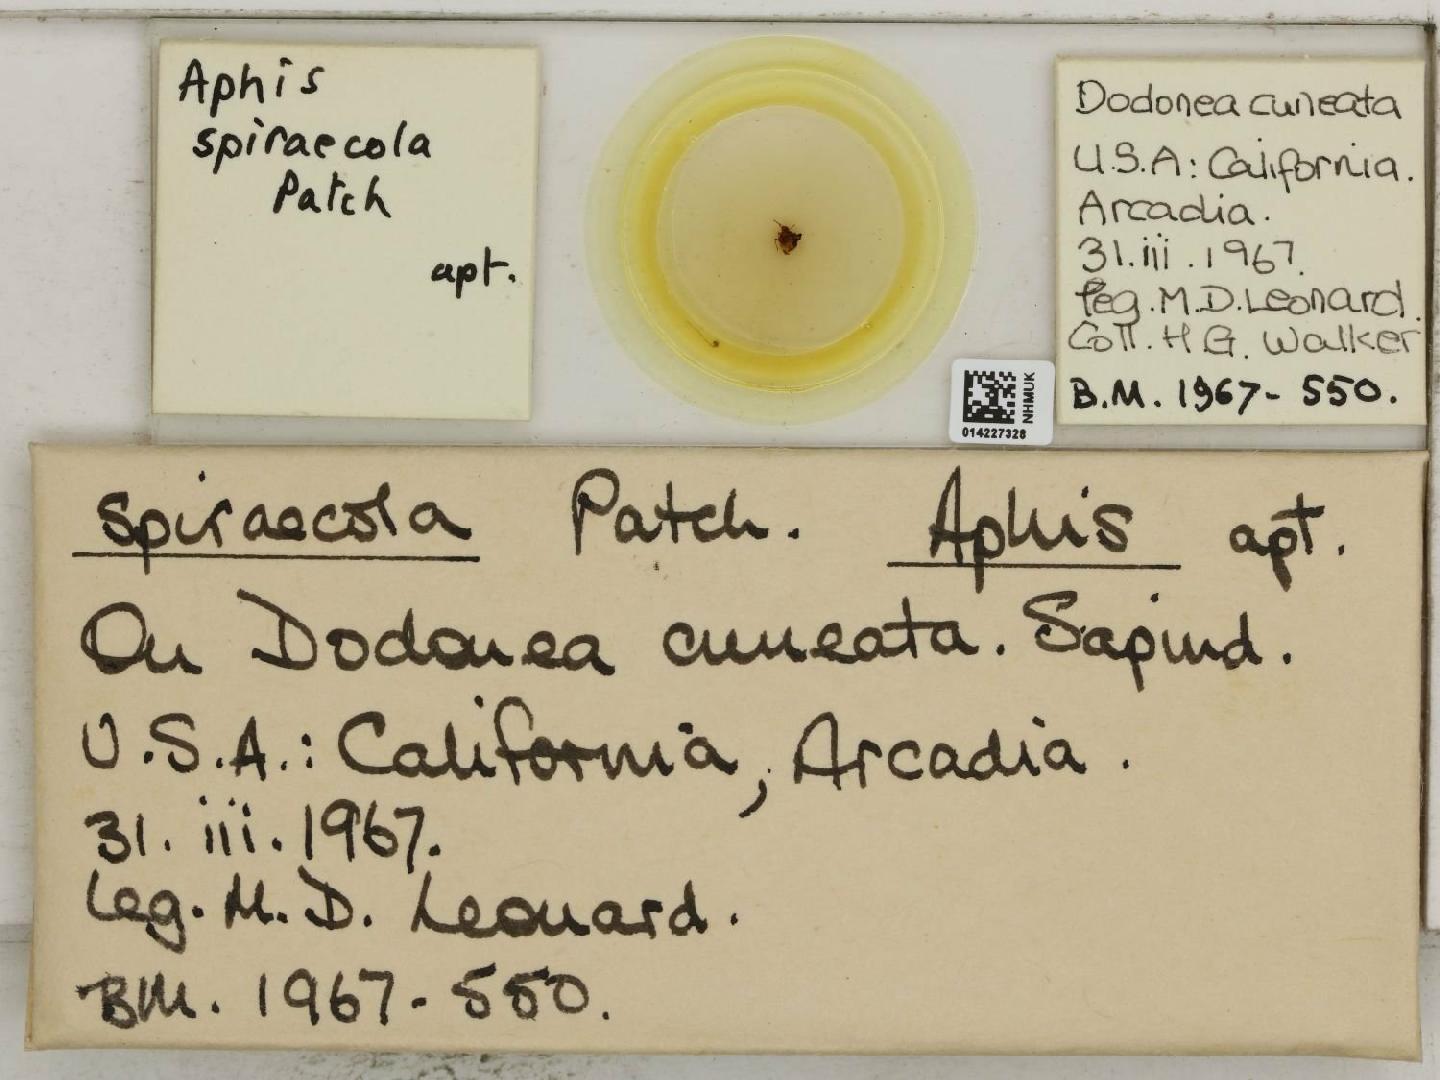 Aphis
spiraecola
Patch
apt.
Dodonea cuneata
U.S.A: California.
Arcadia.
31.iii.1967.
leg. M.D. Leonard.
Coll. H G. Walker
B.M. 1967- 550.
NHMUK
014227328
spiraecola Patch. Aphis apt.
On Dodonea cuneata. Sapind.
U.S.A.: California, Arcadia.
31. iii. 1967.
leg. M. D. Leonard.
BM. 1967-550.